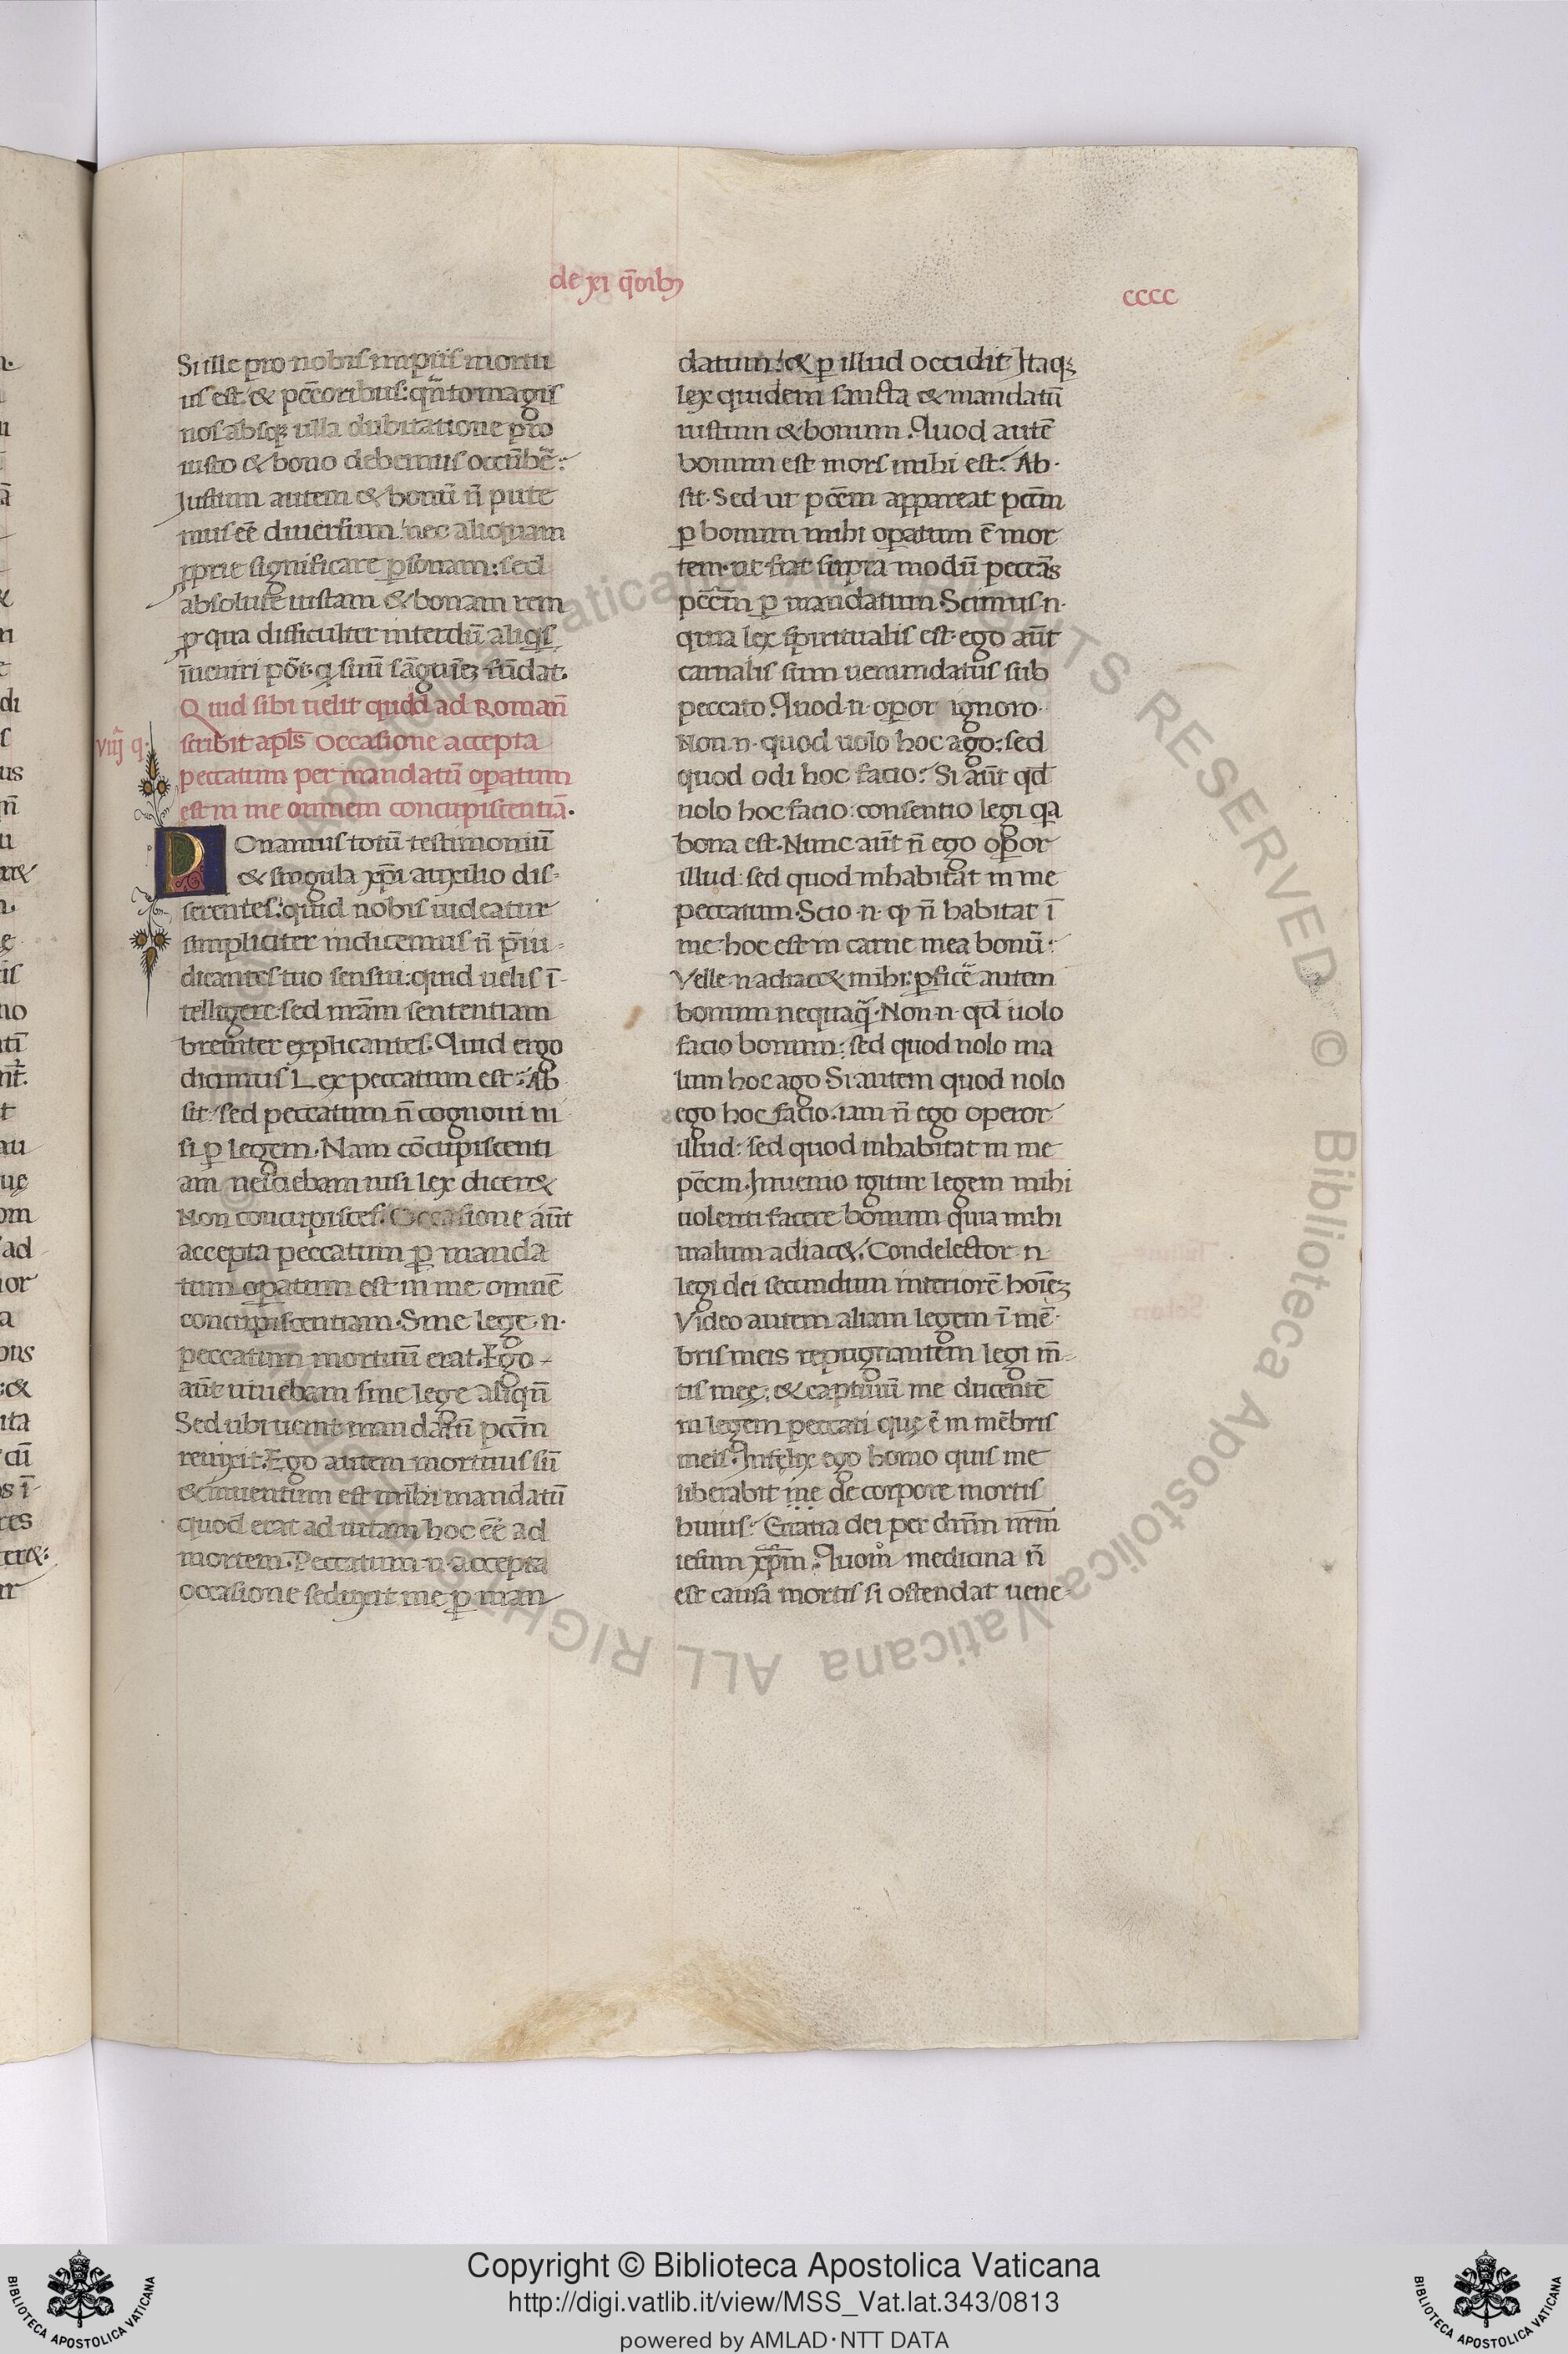 de xi q̄oib;
cccc
Si ille pro nobis impiis mortu
us est & pc̄coribus: qn̄to magis
nos absq; ulla dubitatione pro
iusto & bono debemus occūbē:
Justum autem & bonū n̄ pute
mus eē diuersum: nec aliquam
ꝓprie significare ꝑsonam: sed
absolute iustam & bonam rem
ꝓ qua difficulter interdū aliqs
īueniri pōt. q suū sāguinē; fūdat.
Quid sibi uelit quod ad Roman̄
viij q.
scribit apl̄s Occasione accepta
peccatum per mandatū oꝑatum
est in me omnem concupiscentiā.
Ponamus totū testimoniū
& singula xp̄i auxilio dis-
serentes: quid nobis uideatur
simpliciter indicemus n̄ p̄iu-
dicantes tuo sensui: quid uelis ī-
telligere: sed nr̄am sententiam
breuiter explicantes. Quid ergo
dicimus Lex peccatum est: Ab
sit: sed peccatum n̄ cognoui ni
si ꝑ legem. Nam cōcupiscenti
am nesciebam nisi lex dicer&
Non concupisces. Occasione aūt
accepta peccatum ꝑ manda
tum oꝑatum est in me omnē
concupiscentiam. Sine lege .n.
peccatum mortuū erat. Ego
aūt uiuebam sine lege aliqn̄
Sed ubi uenit mandatū pcc̄m
reuixit. Ego autem mortuus sū
& inuentum est mihi mandatū
quod erat ad uitam hoc eē ad
mortem. Peccatum .n. accepta
occasione seduxit me ꝑ man
datum: & ꝑ illud occidit Itaq;
lex quidem sancta & mandatū
iustum & bonum. Quod autē
bonum est mors mihi est: Ab
sit. Sed ut pcc̄m appareat pcc̄m
ꝑ bonum mihi oꝑatum ē mor
tem. ut fiat supra modū peccās
pcc̄m ꝑ mandatum. Scimus .n.
quia lex spiritualis est. ego aūt
carnalis sum uenundatus sub
peccato. Quod .n. oꝑor ignoro.
Non .n. quod uolo hoc ago: sed
quod odi hoc facio: Si aūt qd
nolo hoc facio: consentio legi qa
bona est. Nunc aūt n̄ ego oꝑor
illud: sed quod inhabitat in me
peccatum. Scio .n. qͦ n̄ habitat ī
me hoc est in carne mea bonū.
Velle .n. adiac& mihi: ꝑficē autem
bonum nequaq̄. Non .n. qd uolo
facio bonum: sed quod nolo ma
lum hoc ago Si autem quod nolo
ego hoc facio. iam n̄ ego operor
illud: sed quod inhabitat in me
pc̄cm. Inuenio igitur legem mihi
uolenti facere bonum quia mihi
malum adiac&. Condelector .n.
legi dei secundum interiorē hoīe;
Video autem aliam legem ī mē-
bris meis repugnantem legi m̄-
tis meę: & captiuū me ducentē
in legem peccati quę ē in mēbris
meis. Infęlix ego homo quis me
liberabit me de corpore mortis
huius: Gratia dei per dn̄m nr̄m
iesum xp̄m. Quom̊ medicina n̄
est causa mortis si ostendat uene-
Copyright © Biblioteca Apostolica Vaticana
http://digi.vatlib.it/view/MSS_Vat.lat.343/0813
powered by AMLAD·NTT DATA